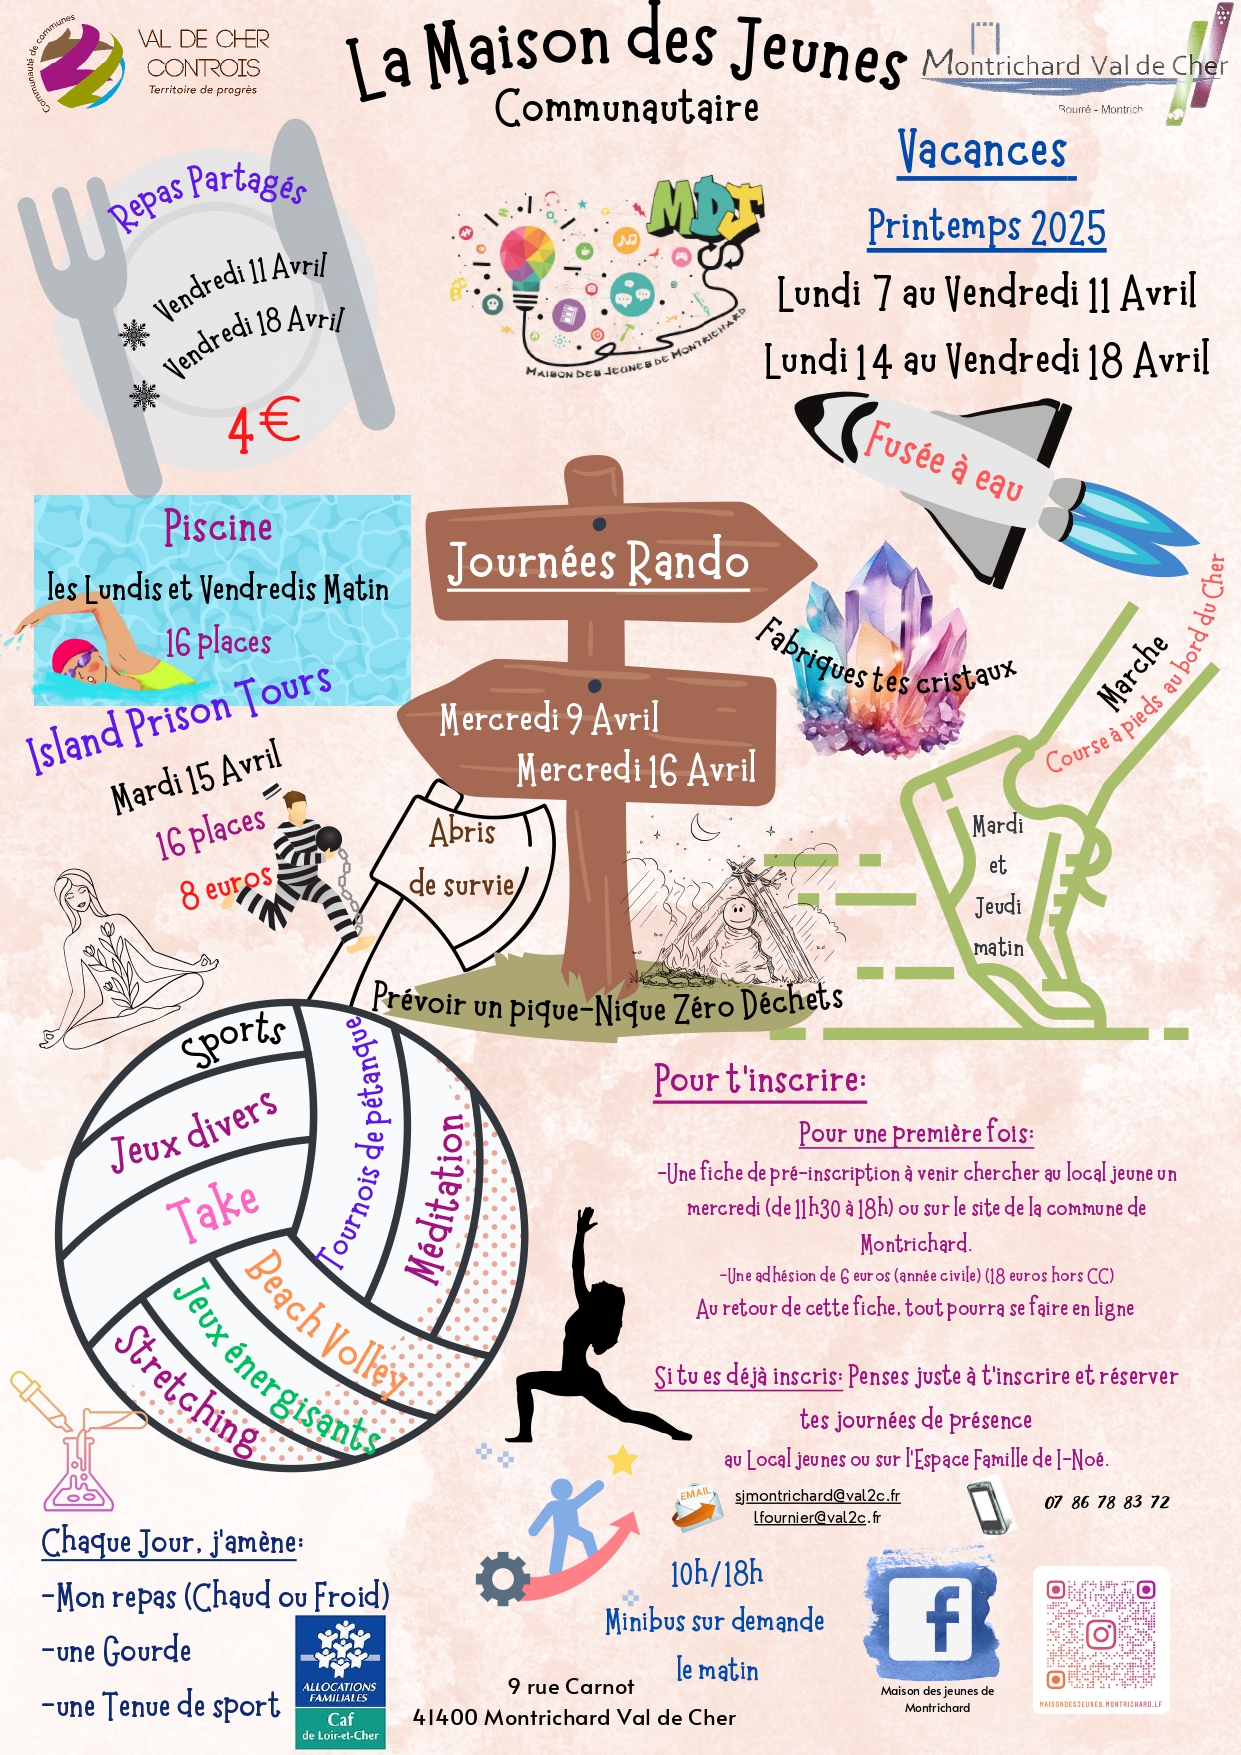 Communauté de communes
VAL DE CHER
CONTROIS
Territoire de progrès
La Maison des Jeunes
Communautaire
Montrichard Val de Cher
Bourré - Montrich
Vacances
Printemps 2025
Lundi 7 au Vendredi 11 Avril
Lundi 14 au Vendredi 18 Avril
Repas Partagés
Vendredi 11 Avril
Vendredi 18 Avril
4€
MDJ
MAISON DES JEUNES DE MONTRICHARD
Fusée à eau
Piscine
les Lundis et Vendredis Matin
16 places
Journées Rando
Mercredi 9 Avril
Mercredi 16 Avril
Fabriques tes cristaux
Marche
Course à pieds au bord du Cher
Mardi
et
Jeudi
matin
Island Prison Tours
Mardi 15 Avril
16 places
8 euros
Abris
de survie
Prévoir un pique-Nique Zéro Déchets
Sports
Jeux divers
Take
Tournois de pétanque
Méditation
Beach Volley
Jeux énergisants
Stretching
Pour t'inscrire:
Pour une première fois:
-Une fiche de pré-inscription à venir chercher au local jeune un
mercredi (de 11h30 à 18h) ou sur le site de la commune de
Montrichard.
-Une adhésion de 6 euros (année civile) (18 euros hors CC)
Au retour de cette fiche, tout pourra se faire en ligne
Si tu es déjà inscris: Penses juste à t'inscrire et réserver
tes journées de présence
au Local jeunes ou sur l'Espace Famille de I-Noé.
EMAIL
sjmontrichard@val2c.fr
lfournier@val2c.fr
07 86 78 83 72
Chaque Jour, j'amène:
-Mon repas (Chaud ou Froid)
-une Gourde
-une Tenue de sport
ALLOCATIONS
FAMILIALES
Caf
de Loir-et-Cher
10h/18h
Minibus sur demande
le matin
9 rue Carnot
41400 Montrichard Val de Cher
Maison des jeunes de
Montrichard
MAISONDESJEUNES.MONTRICHARD.LF